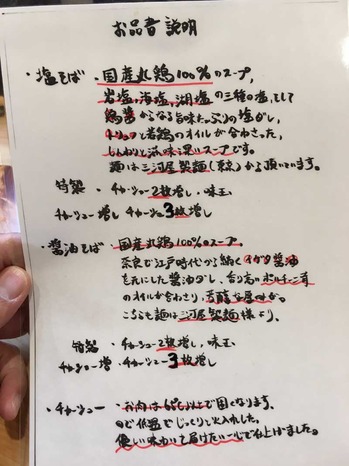 お品書 説明
・塩そば・国産丸鶏100%のスープ,
岩塩,海塩,湖塩の三種の塩,そして
鶏醤からなる旨味たっぷりの塩ダレ,
と若鶏のオイルが合わさった,
じんわりと滋味深いスープです。
麺は三河屋製麺(東京)から頂いています。
特製・チャーシュー2枚増し,味玉
チャーシュー増し チャーシュー3枚増し
・醤油そば・国産丸鶏100%のスープ,
奈良で江戸時代から続くイゲタ醤油
を元にした醤油ダレ,香り高いポルチーニ茸
のオイルが合わさり,芳醇な味わい。
こちらも麺は三河屋製麺様より,
特製・チャーシュー2枚増し,味玉
チャーシュー増・チャーシュー3枚増し
・チャーシュー・お肉は以上で固くなります。
ので低温でじっくりと火入れした。
優しい味わいで届けたい…心で仕上げました。